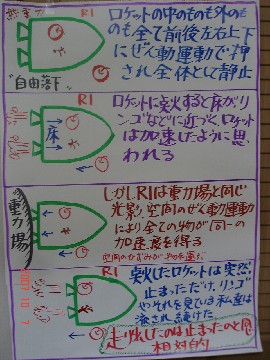 無重力
R1
"自由落下"
ロケットの中のものも外の
ものも全て前後左右上下
にぜん動運動で押
され全体として静止
R1
床
ロケットに点火すると床がリ
ンゴなどに近づく、ロケット
は加速したように思
われる
重力場
R1
しかしR1は重力場と同じ
光影、空間のぜん動運動
により全ての物が同一の
加速度を得る
R1
点火したロケットは突然
止まっただけ、リンゴ
やそれを見ている私達は
流され続けた
走り出したのは止まったのと同じ
相対的
2007 10 7